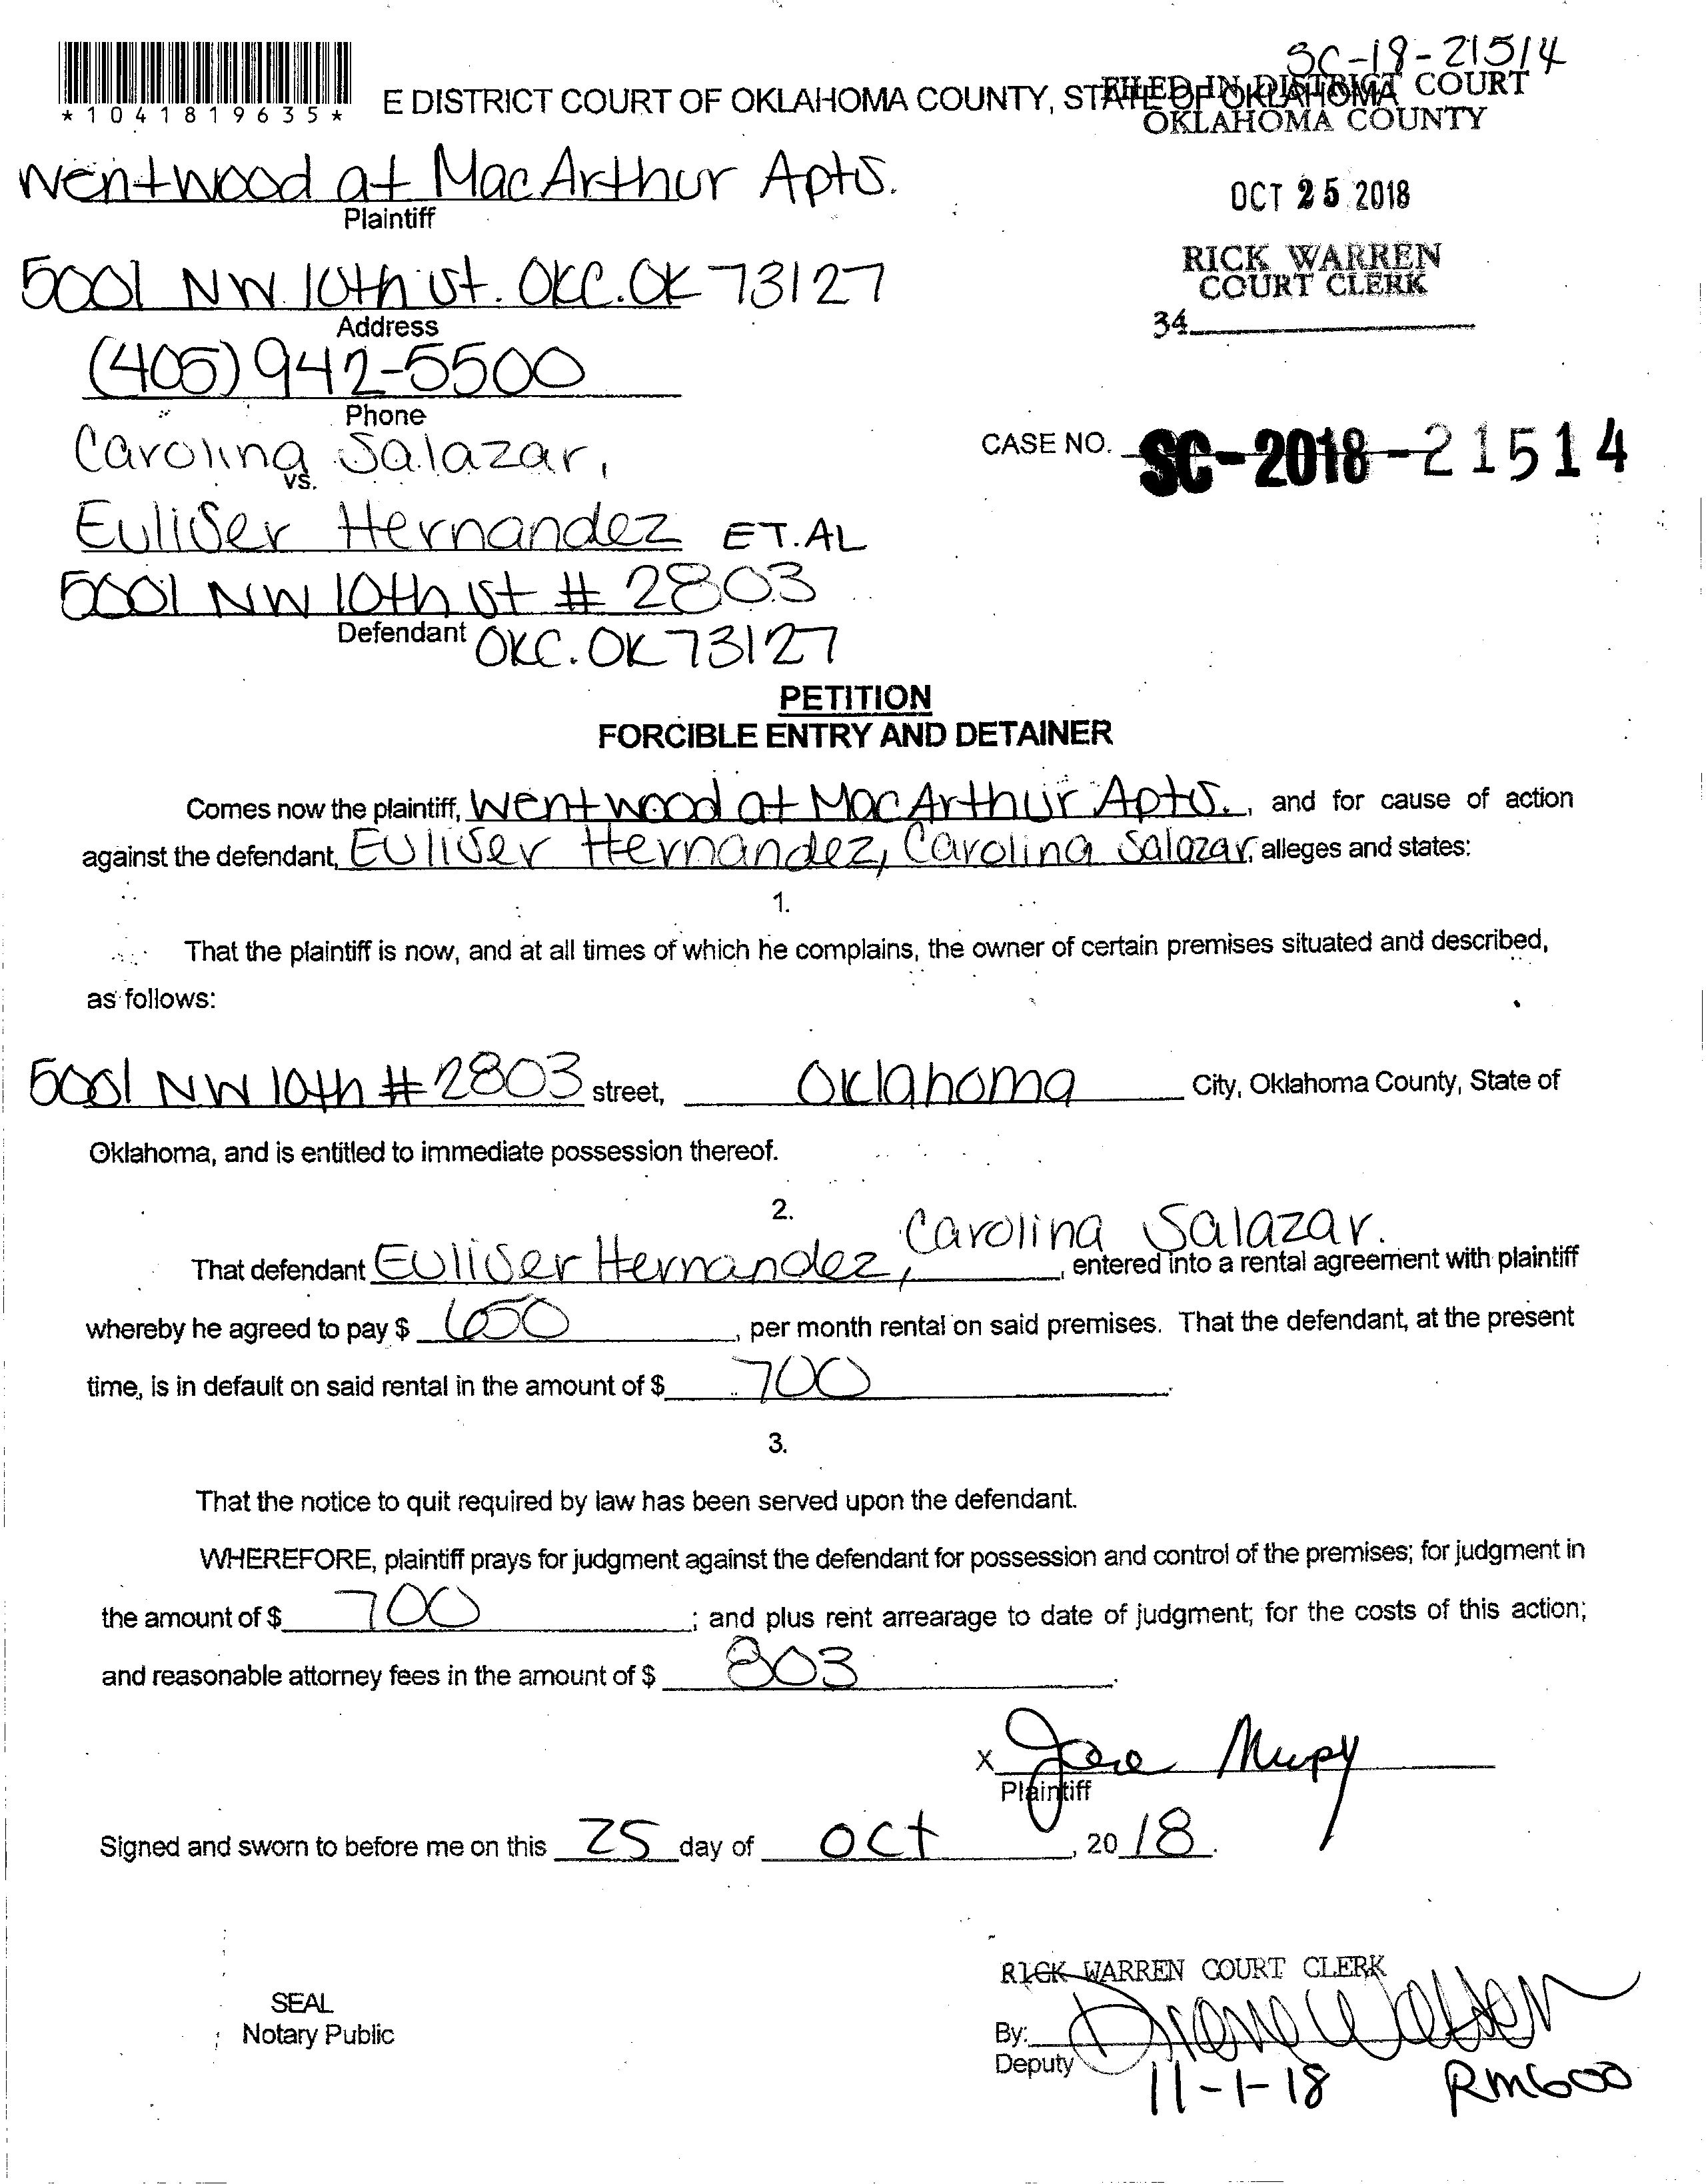 SC-18-21514
*1041819635*
E DISTRICT COURT OF OKLAHOMA COUNTY, STATE OF OKLAHOMA
FILED IN DISTRICT COURT
OKLAHOMA COUNTY
Wentwood at MacArthur Apts.
Plaintiff
OCT 25 2018
5001 NW 10th st. OKC. OK 73127
Address
RICK WARREN
COURT CLERK
34
(405) 942-5500
Phone
Carolina Salazar,
vs.
CASE NO. SC-2018-21514
Euliser Hernandez ET.AL
5001 NW 10th st # 2803
Defendant OKC. OK 73127
PETITION
FORCIBLE ENTRY AND DETAINER
Comes now the plaintiff, Wentwood at MacArthur Apts., and for cause of action
against the defendant, Euliser Hernandez, Carolina Salazar, alleges and states:
1.
That the plaintiff is now, and at all times of which he complains, the owner of certain premises situated and described,
as follows:
5001 NW 10th # 2803 street, Oklahoma City, Oklahoma County, State of
Oklahoma, and is entitled to immediate possession thereof.
2.
Carolina Salazar.
That defendant Euliser Hernandez, , entered into a rental agreement with plaintiff
whereby he agreed to pay $ 650 , per month rental on said premises. That the defendant, at the present
time, is in default on said rental in the amount of $ 700 .
3.
That the notice to quit required by law has been served upon the defendant.
WHEREFORE, plaintiff prays for judgment against the defendant for possession and control of the premises; for judgment in
the amount of $ 700 ; and plus rent arrearage to date of judgment; for the costs of this action;
and reasonable attorney fees in the amount of $ 803 .
X
Plaintiff
Signed and sworn to before me on this 25 day of Oct , 20 18 .
RICK WARREN COURT CLERK
SEAL
Notary Public
By:
Deputy
11-1-18 RM600